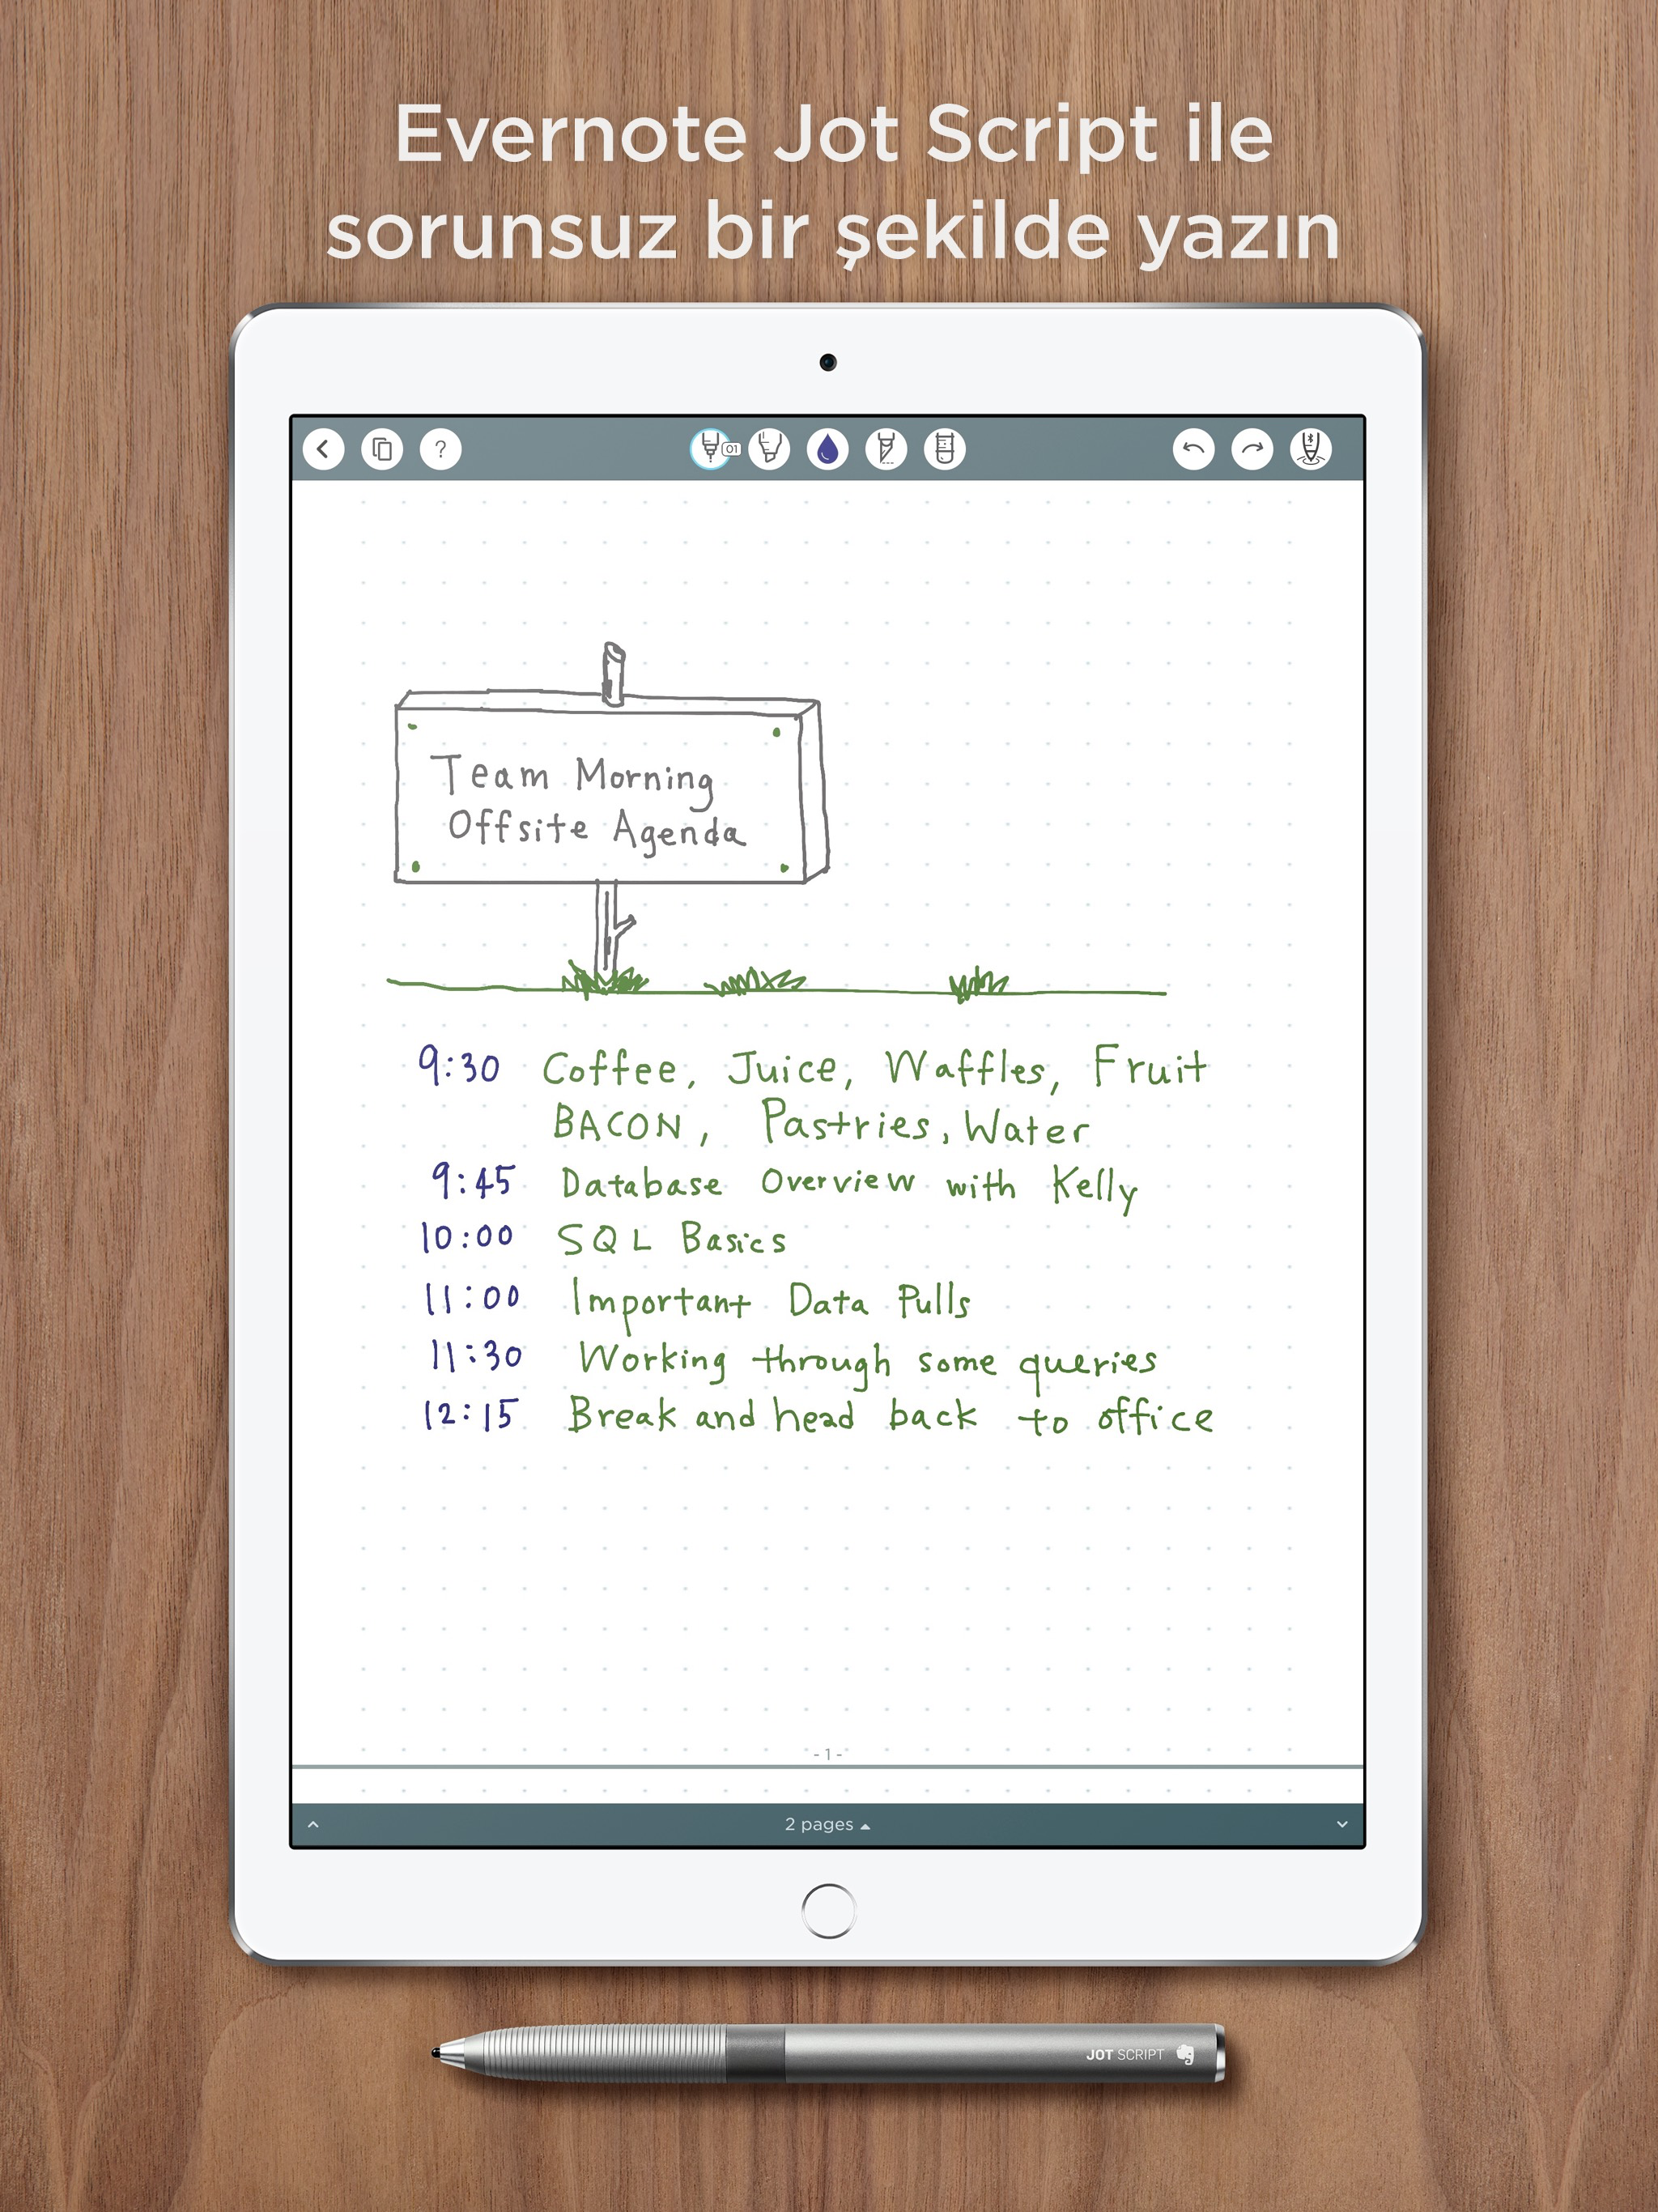 Evernote Jot Script ile
sorunsuz bir şekilde yazın
?
01
Team Morning
Offsite Agenda
9:30 Coffee, Juice, Waffles, Fruit
BACON, Pastries, Water
9:45 Database Overview with Kelly
10:00 SQL Basics
11:00 Important Data Pulls
11:30 Working through some queries
12:15 Break and head back to office
- 1 -
2 pages
JOT SCRIPT